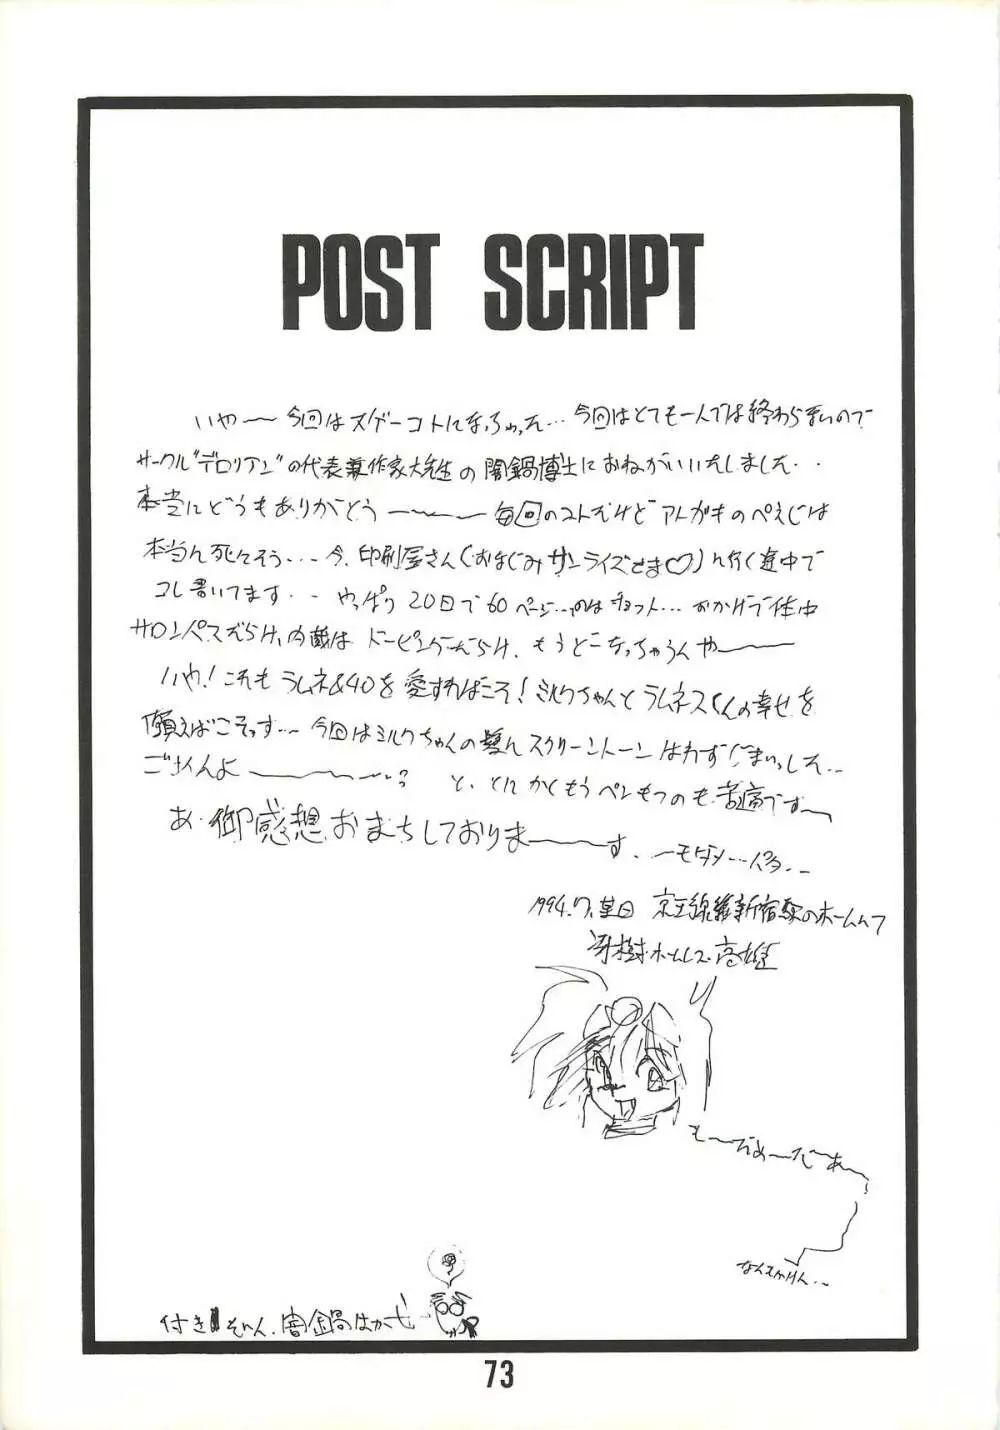 POST SCRIPT
いや〜今回はスゲーコトになっちゅった…今回はとても一人では終わらないので
サークル"デロリアン"の代表兼作家大先生の闇鍋博士におねがいいたしました‥
本当にどうもありがとう〜〜毎回のコトだけどアトガキのぺえじは
本当に死にそう...今、印刷屋さん(おはじみサンライズさま♡)に行く途中で
コレ書いてます‥ やっぱり20日で60ページ…のはチョット…おかげで体中
サロンパスだらけ、内蔵はドーピングだらけ、もうどーなっちゃうんや〜
いや!これもラムネ&40を愛すればこそ!ミルクちゃんとラムネスくんの幸せを
願えばこそっす…今回はミルクちゃんの髪にスクリーントーンはわずじまいっした‥
ごめんよ〜〜? と、とにかくもうペンもつのも苦痛です〜
あ・御感想おまちしておりま〜〜す.
1994.7. 京王線新宿駅のホームにて
冴樹・ホームレス・高雄
も〜だめ〜だ〜あ〜
なんもかけん‥
付き 闇鍋はかせ
73